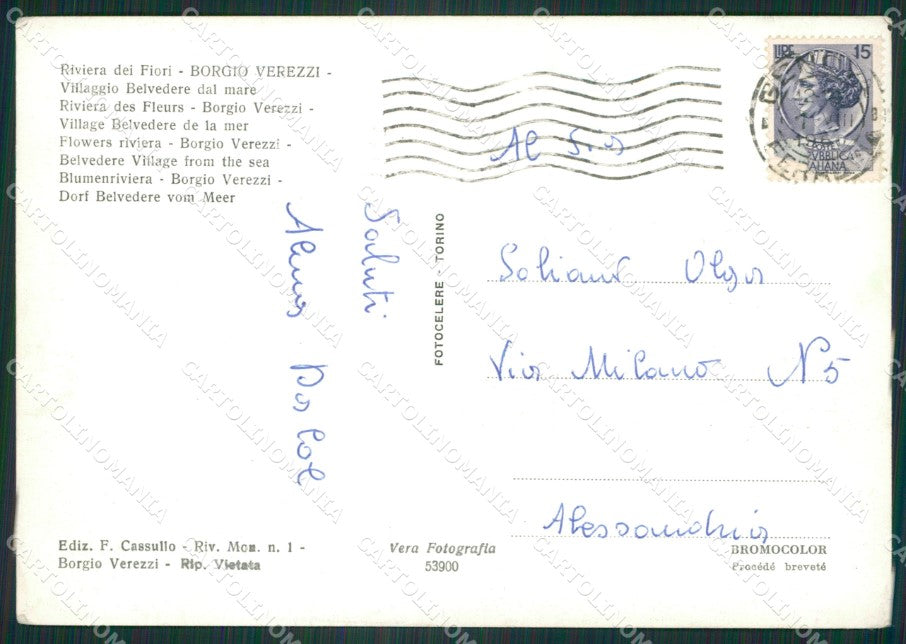 Riviera dei Fiori - BORGIO VEREZZI -
Villaggio Belvedere dal mare
Riviera des Fleurs - Borgio Verezzi -
Village Belvedere de la mer
Flowers riviera - Borgio Verezzi -
Belvedere Village from the sea
Blumenriviera - Borgio Verezzi -
Dorf Belvedere vom Meer
Saluti
FOTOCELERE - TORINO
LIRE 15
Al
Olga
Via Milano N 5
Alessandria
Ediz. F. Cassullo - Riv. Mon. n. 1 -
Borgio Verezzi - Rip. Vietata
Vera Fotografia
53900
BROMOCOLOR
Procédé breveté
CARTOLINOMANIA